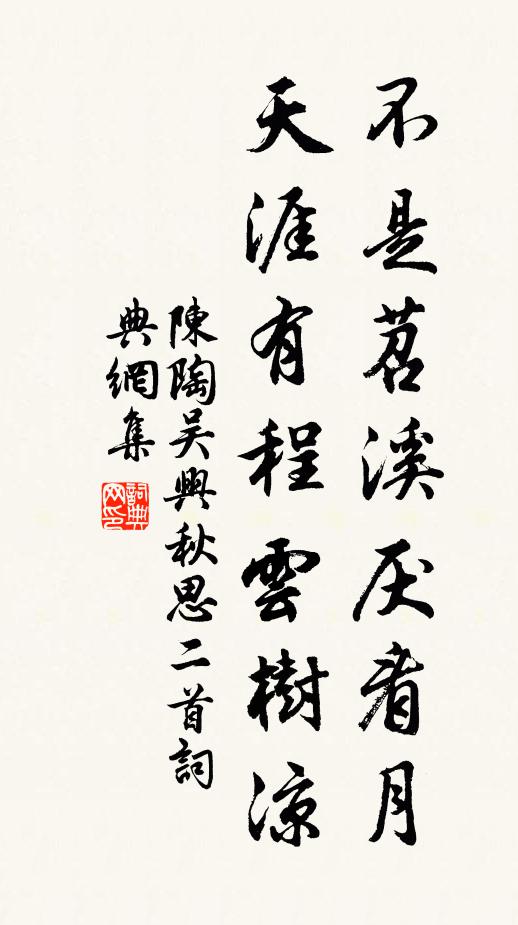 不是苕溪厌看月
天涯有程雲樹涼
陳陶吴興秋思二首詞
典網集
詞典
网印